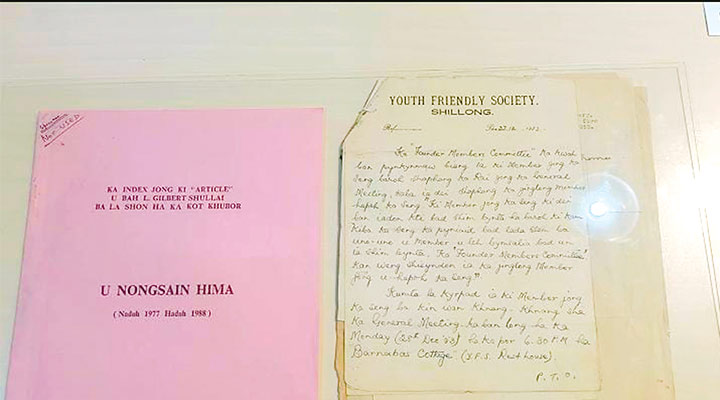 NOT-USED
KA INDEX JONG KI "ARTICLE"
U BAH L. GILBERT SHULLAI
BA LA SHON HA KA KOT KHUBOR
U NONGSAIN HIMA
( Naduh 1977 Haduh 1988 )
YOUTH FRIENDLY SOCIETY.
SHILLONG.
Ka "Founder Members Committee" Ka kwah
ban pynkynmaw biang ia ki Member jong ka
Seng baroh shaphang ka Rai jong ka General
Meeting, kaba ia dei shaphang ka jinglong member
hapoh ka Seng. "Ki Member jong ka Seng ki dei
ban iading kte bad shim bynta ha baroh ki kam
Kiba ka Seng ka pynmih bad lada shem ba
uno-uno u Member u leh bymtabia bad um
ia shim bynta. Ka "Founder Members Committee"
kan weng shisyndon ia ka jinglong Member
jong u hapoh ka Seng."
Kumta la kyrpad ia ki Member jong
ka Seng ba kin wan khnang-khnang sha
ka General Meeting kaban long ha ka
Monday (28th Dec '83) ha ka por 6.30 P.M. ha
Barnabas Cottage (Y.F.S. Rest house).
P. T. O.